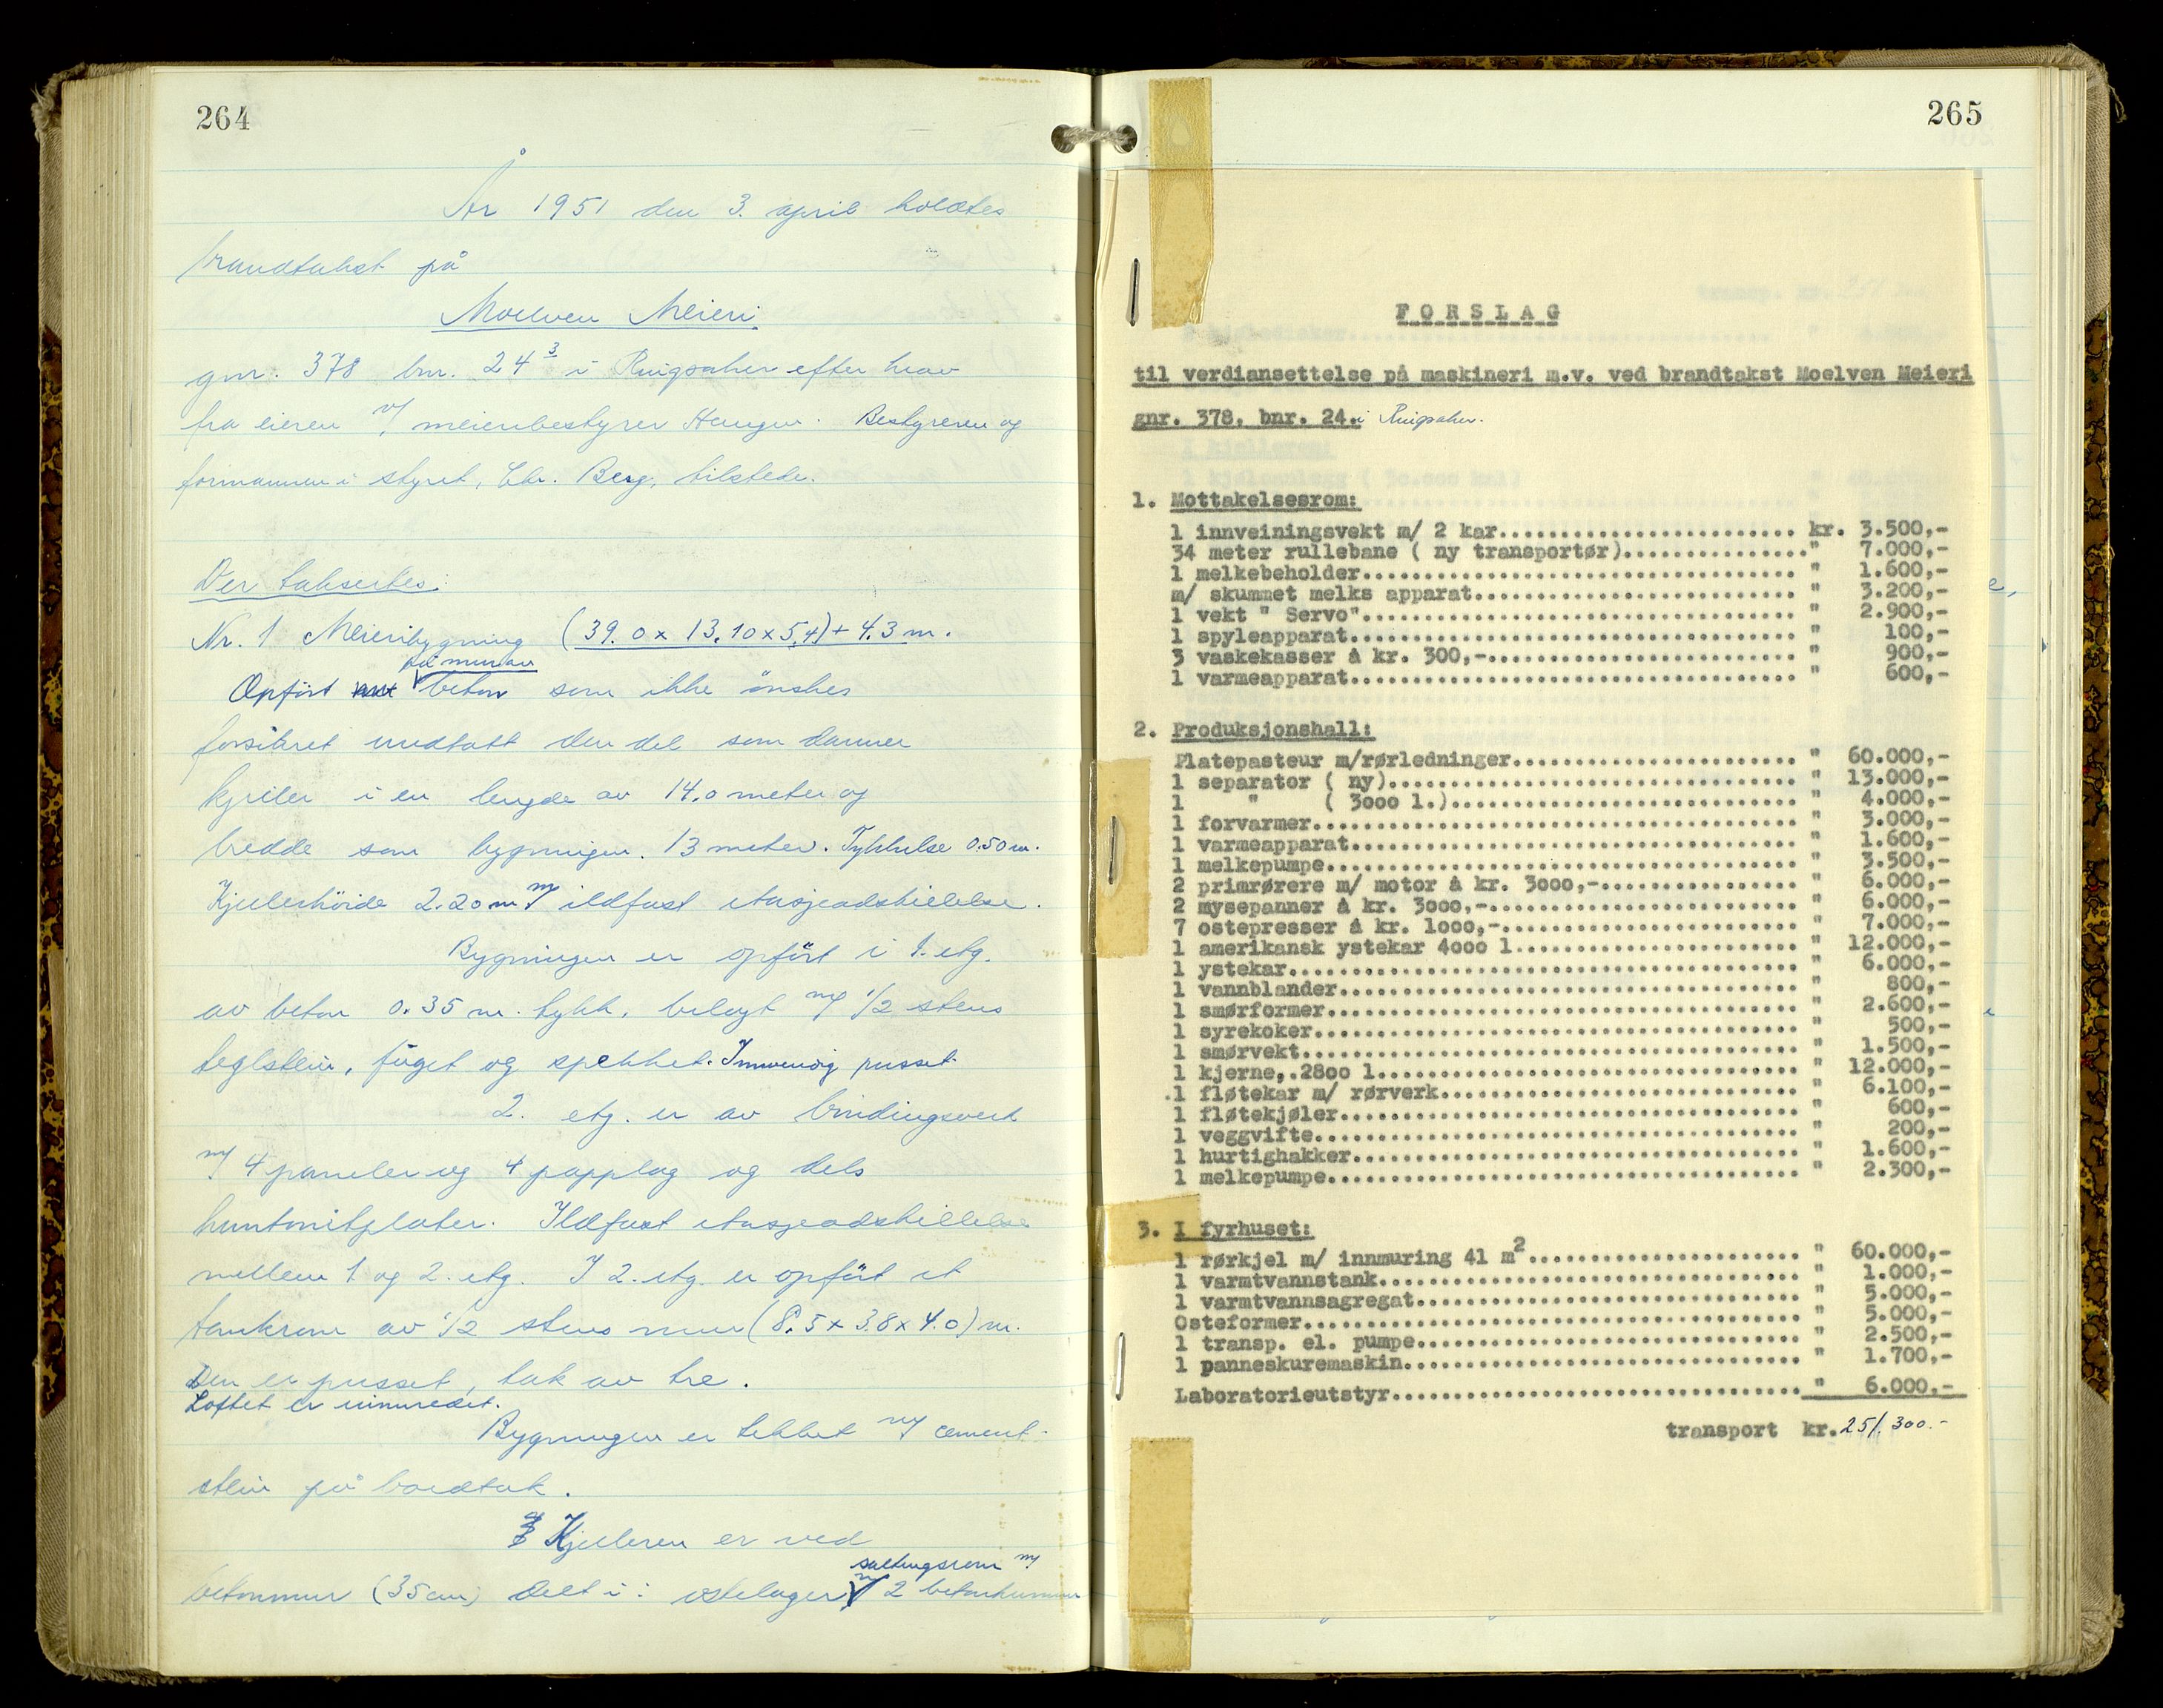 264
År 1951 den 3. april holdtes
brandtakst på
Moelven Meieri.
gnr. 378 bnr. 24³ i Ringsaker efter krav
fra eieren v/ meieribestyrer Haugen. Bestyreren og
formannen i styret, Chr. Berg, tilstede.
Der taksertes:
Nr. 1 Meieribygning (39.0 x 13.10 x 5,4) + 4.3 m.
på murav
Opført betong som ikke ønskes
forsikret undtatt den del som danner
kjeller i en lengde av 14.0 meter og
bredde som bygningen. 13 meter. Tykkelse 0.50 m.
Kjellerhöide 2.20 m m/ ildfast etasjeadskillelse.
Bygningen er opført i 1. etg.
av beton 0.35 m. tykk, belagt m/ 1/2 stens
teglstein, fuget og spekket. Innvendig pusset.
2. etg. er av bindingsverk
m/ 4 paneler og 4 papplag og dels
huntonitplater. Ildfast etasjeadskillelse
mellem 1. og 2. etg. I 2. etg. er opført et
tankrom av 1/2 stens mur (8.5 x 3.8 x 4.0) m.
Den er pusset, tak av tre.
Loftet er innredet.
Bygningen er tekket m/ cement-
stein på bordtak.
Kjelleren er ved
saltingsrom m/
betonmur (35 cm) delt i: ostelager, m/ 2 betonkummer
265
FORSLAG
til verdiansettelse på maskineri m.v. ved brandtakst Moelven Meieri
gnr. 378, bnr. 24. i Ringsaker.
1. Mottakelsesrom:
1 innveiningsvekt m/ 2 kar.......................... kr. 3.500,-
34 meter rullebane ( ny transportør)................" 7.000,-
1 melkebeholder..................................... " 1.600,-
m/ skummet melks apparat............................ " 3.200,-
1 vekt " Servo"..................................... " 2.900,-
1 spyleapparat...................................... " 100,-
3 vaskekasser å kr. 300,-........................... " 900,-
1 varmeapparat...................................... " 600,-
2. Produksjonshall:
Platepasteur m/rørledninger......................... " 60.000,-
1 separator ( ny)................................... " 13.000,-
1 " ( 3000 l.)................................... " 4.000,-
1 forvarmer......................................... " 3.000,-
1 varmeapparat...................................... " 1.600,-
1 melkepumpe........................................ " 3.500,-
2 primrørere m/ motor å kr. 3000,-.................. " 6.000,-
2 mysepanner å kr. 3000,-........................... " 6.000,-
7 ostepresser å kr. 1000,-.......................... " 7.000,-
1 amerikansk ystekar 4000 l......................... " 12.000,-
1 ystekar........................................... " 6.000,-
1 vannblander....................................... " 800,-
1 smørformer........................................ " 2.600,-
1 syrekoker......................................... " 500,-
1 smørvekt.......................................... " 1.500,-
1 kjerne,.2800 l.................................... " 12.000,-
1 fløtekar m/ rørverk............................... " 6.100,-
1 fløtekjøler....................................... " 600,-
1 veggvifte......................................... " 200,-
1 hurtighakker...................................... " 1.600,-
1 melkepumpe........................................ " 2.300,-
3. I fyrhuset:
1 rørkjel m/ innmuring 41 m²........................ " 60.000,-
1 varmtvannstank.................................... " 1.000,-
1 varmtvannsagregat................................. " 5.000,-
Osteformer.......................................... " 5.000,-
1 transp. el. pumpe................................. " 2.500,-
1 panneskuremaskin.................................. " 1.700,-
Laboratorieutstyr................................... " 6.000,-
transport kr. 251.300.-